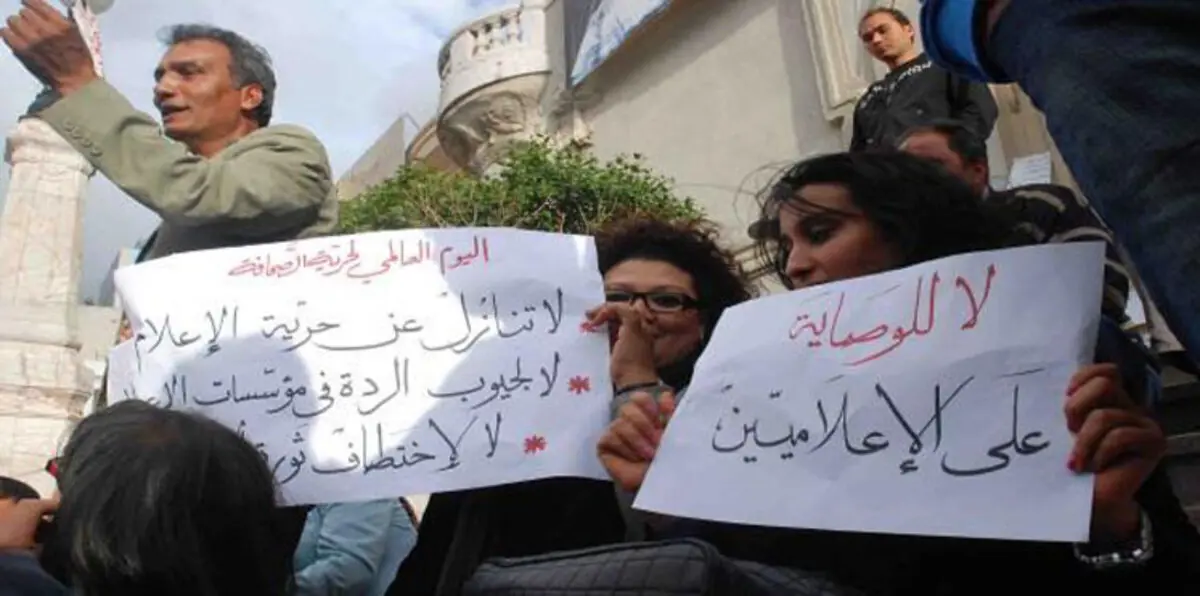 اليوم العالمي لحرية الصحافة
لا تنازل عن حرية الإعلام
* لا لجيوب الردة في مؤسسات
* لا لإختطاف ثورة
لا للوصاية
على الإعلاميين